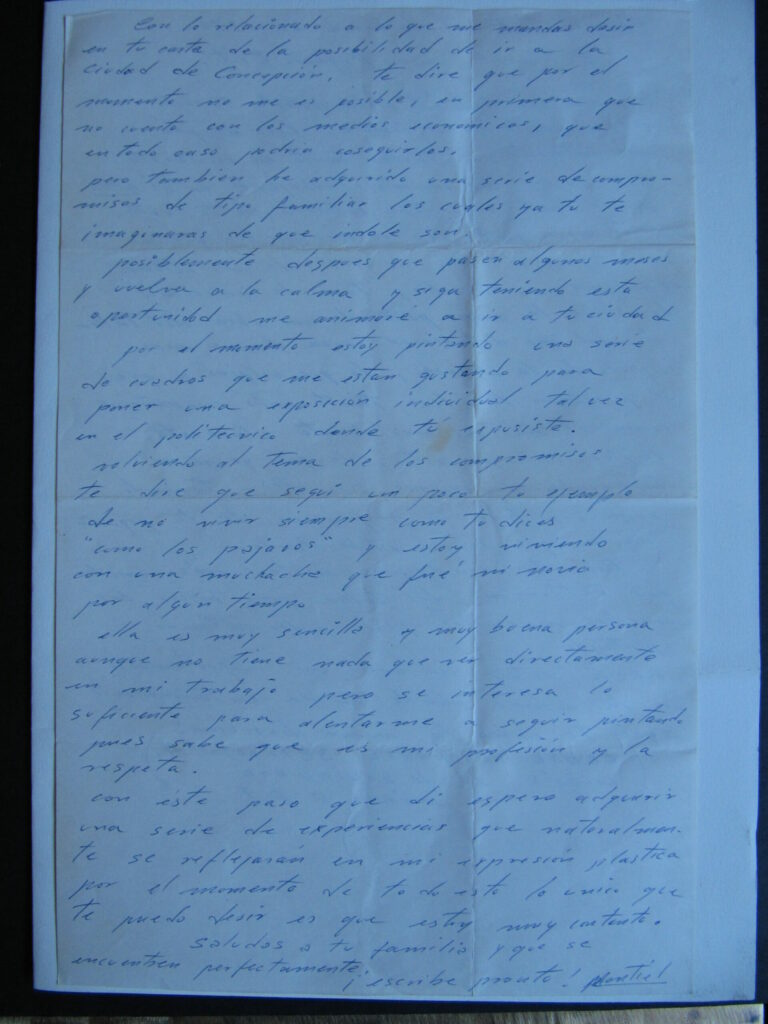 Con lo relacionado a lo que me mandas desir
en tu carta de la posibilidad de ir a la
ciudad de Concepción, te dire que por el
momento no me es posible, en primera que
no cuento con los medios economicos, que
en todo caso podria coseguirlos,
pero tambien he adquirido una serie de compro-
misos de tipo familiar los cuales ya tu te
imaginaras de que indole son
posiblemente despues que pasen algunos meses
y vuelva a la calma y siga teniendo esta
oportunidad me animare a ir a tu ciudad
por el momento estoy pintando una serie
de cuadros que me estan gustando para
poner una exposición individual tal vez
en el politecnico donde tu expusiste.
volviendo al tema de los compromisos
te dire que segui un poco tu ejemplo
de no vivir siempre como tu dices
"como los pajaros" y estoy viviendo
con una muchacha que fué mi novia
por algún tiempo
ella es muy sencilla y muy buena persona
aunque no tiene nada que ver directamente
en mi trabajo pero se interesa lo
suficiente para alentarme a seguir pintando
pues sabe que es mi profesión y la
respeta.
con éste paso que di espero adquirir
una serie de experiencias que naturalmen-
te se reflejarán en mi expresión plastica
por el momento de todo esto lo unico que
te puedo desir es que estoy muy contento.
Saludos a tu familia y que se
encuentren perfectamente
¡escribe pronto!